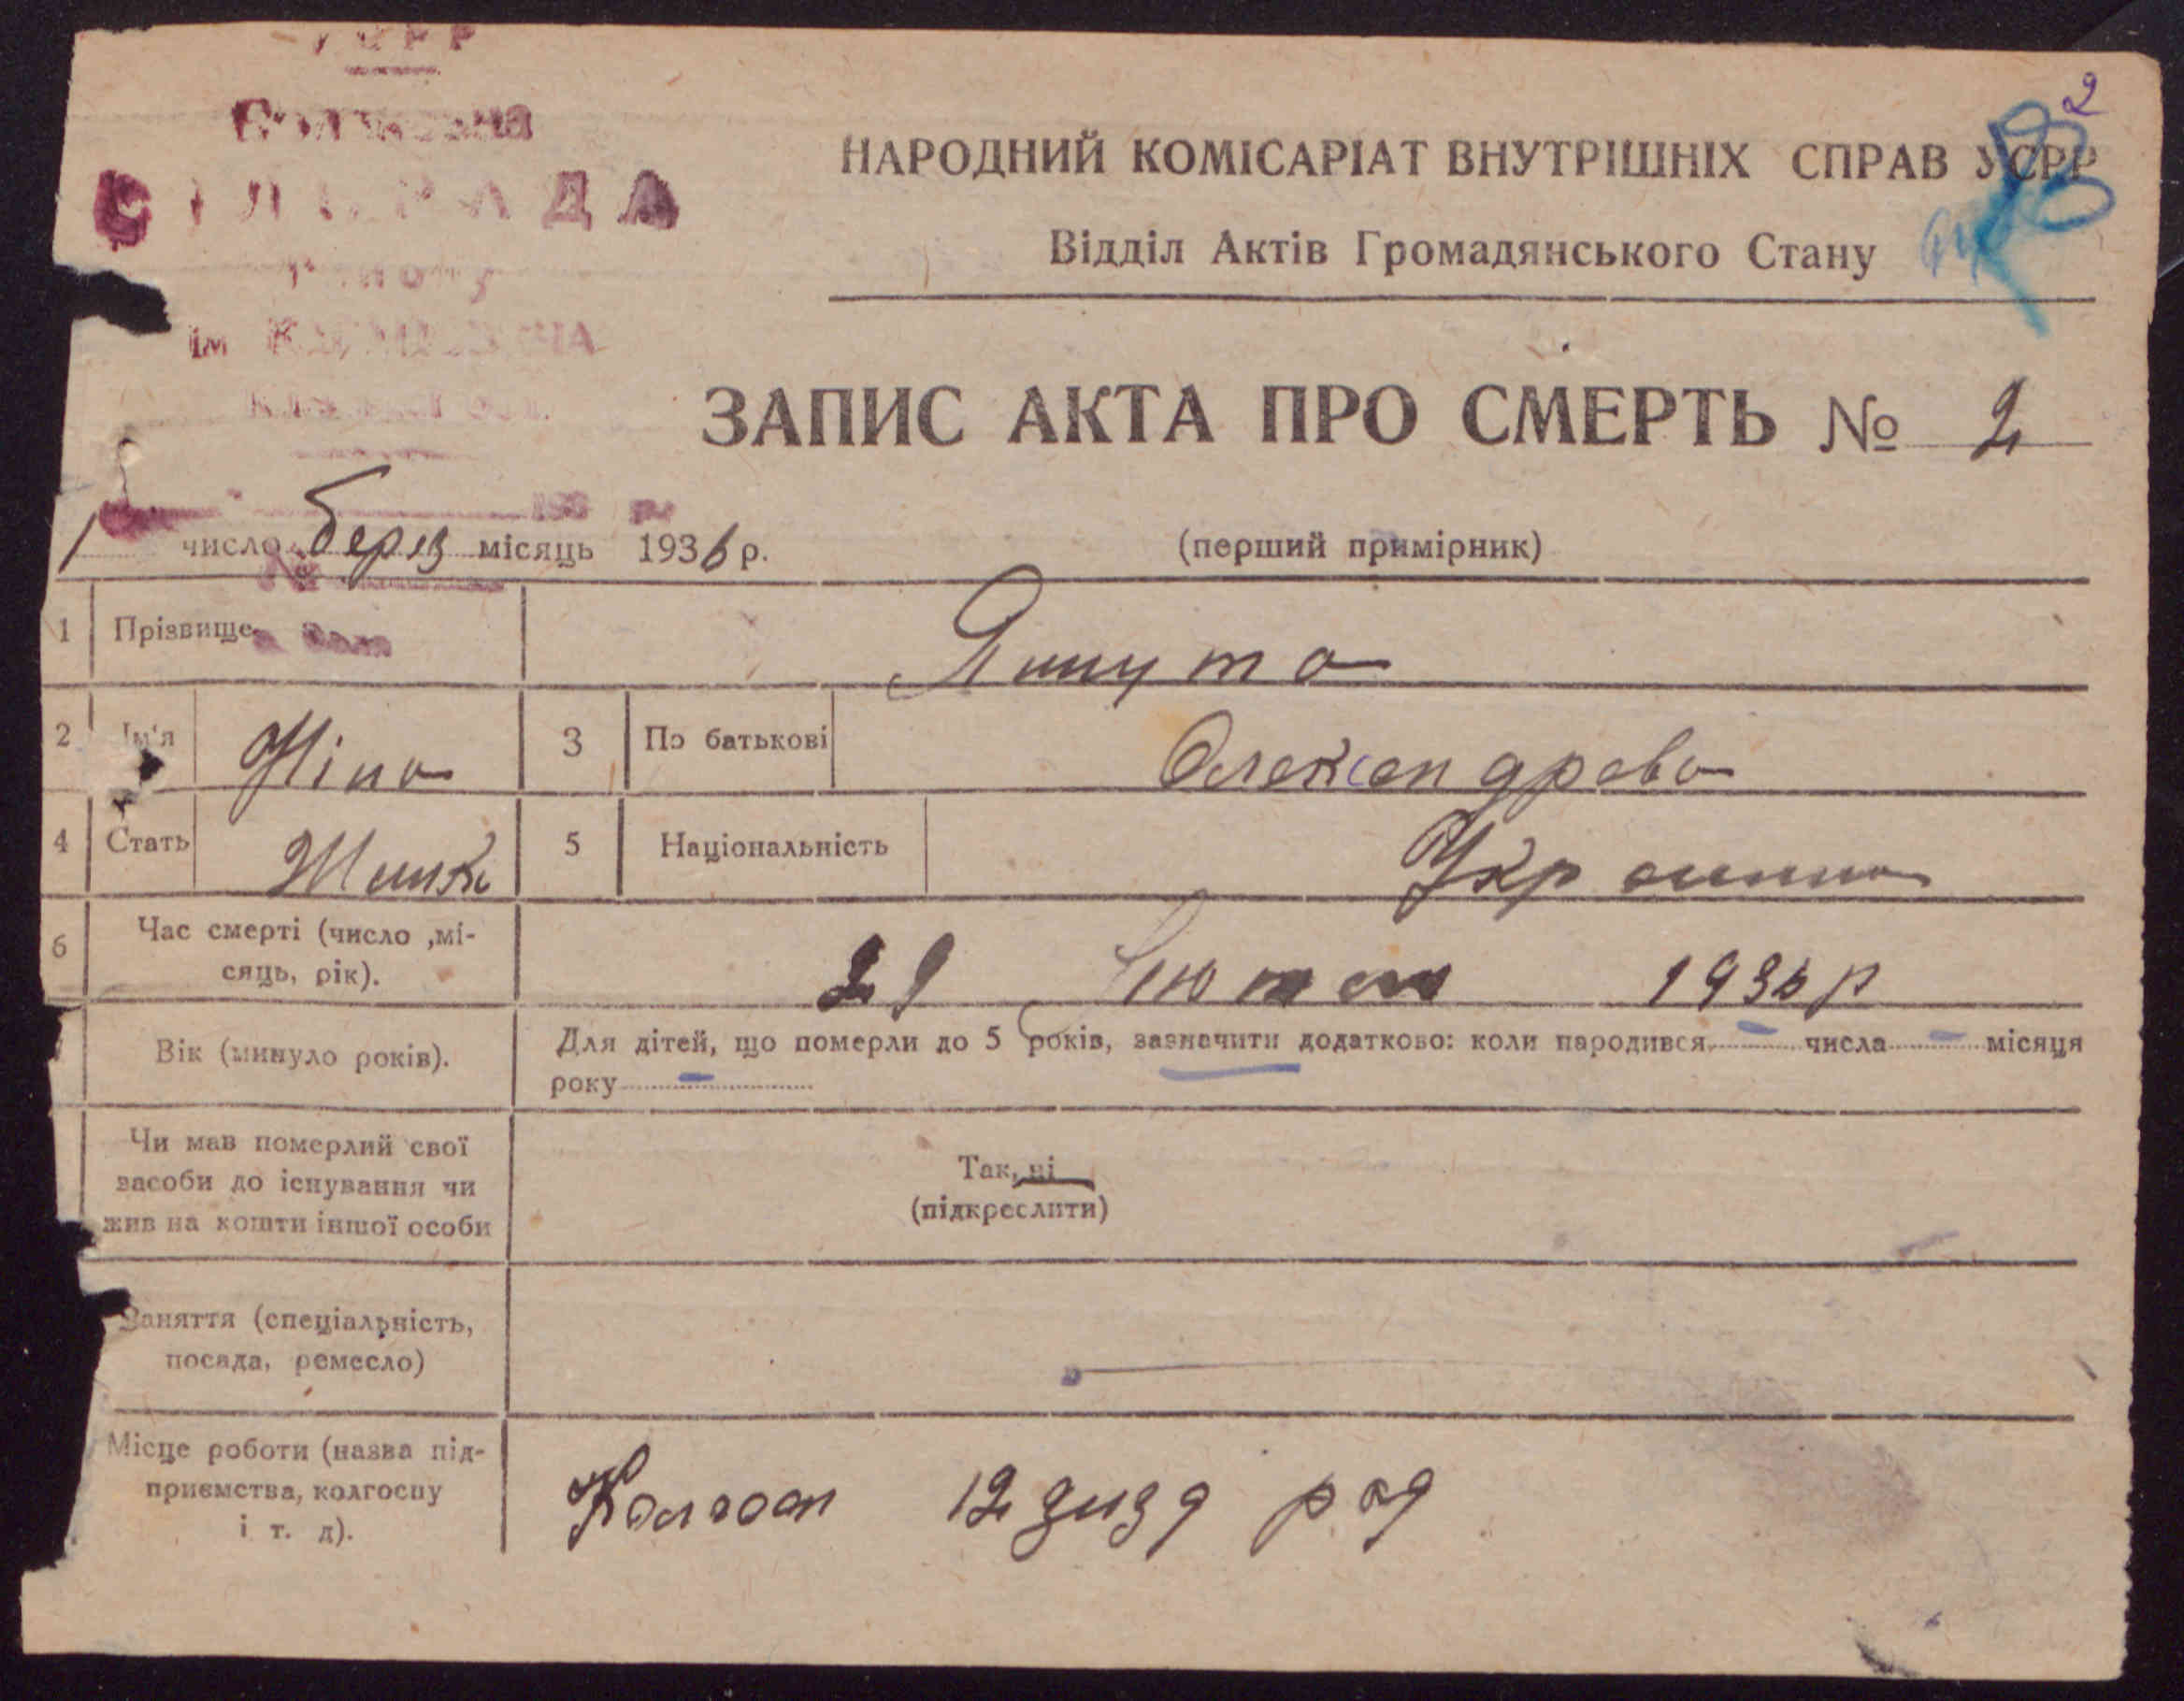 УСРР
СІЛЬРАДА
ім
2
НАРОДНИЙ КОМІСАРІАТ ВНУТРІШНІХ СПРАВ УСРР
Відділ Актів Громадянського Стану
ЗАПИС АКТА ПРО СМЕРТЬ № 2
1 число берез місяць 1936 р. (перший примірник)
1 Прізвище
2 Ім'я Ніна 3 По батькові Олександрова
4 Стать Жінка 5 Національність Українка
6 Час смерті (число ,мі-
сяць, рік). 29 Лютого 1936 р
Вік (минуло років). Для дітей, що померли до 5 років, зазначити додатково: коли народився числа місяця
року
Чи мав померлий свої
засоби до існування чи
жив на кошти іншої особи
Так, ні
(підкреслити)
Заняття (спеціальність,
посада, ремесло)
Місце роботи (назва під-
приємства, колгоспу
і т. д).
Колгосп 12 зизд рад